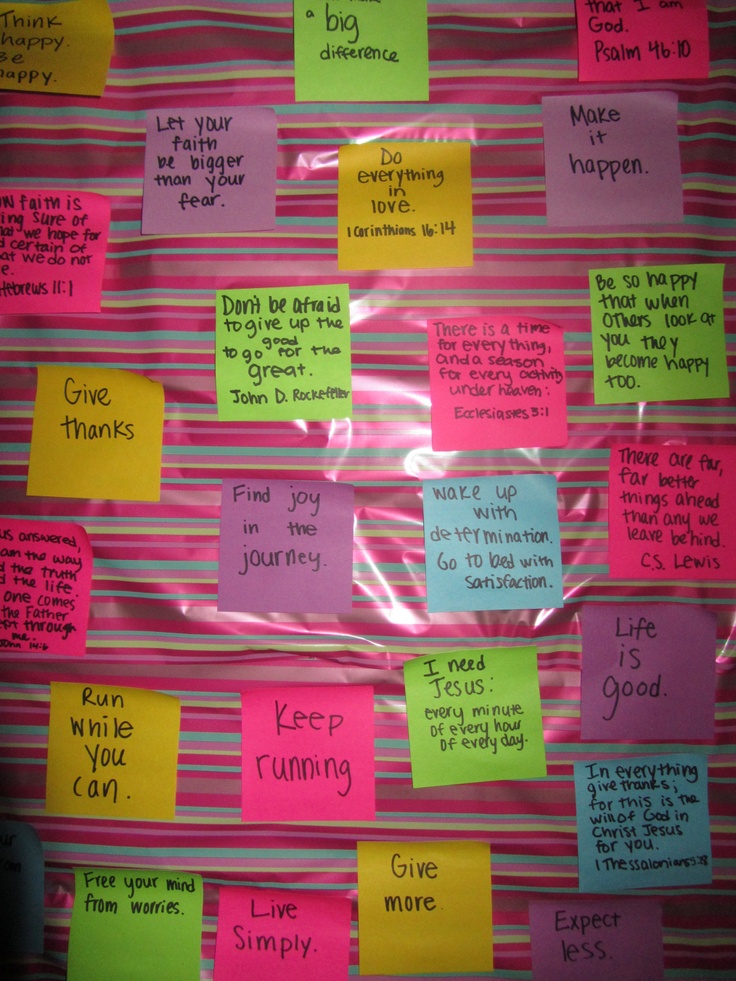 Think
happy.
Be
happy.
a big
difference
that I am
God.
Psalm 46:10
Let your
faith
be bigger
than your
fear.
Do
everything
in
love.
1 Corinthians 16:14
Make
it
happen.
faith is
sure of
we hope for
certain of
we do not
Hebrews 11:1
Don't be afraid
to give up the
good
to go for the
great.
John D. Rockefeller
There is a time
for everything,
and a season
for every activity
under heaven:
Ecclesiastes 3:1
Be so happy
that when
others look at
you they
become happy
too.
Give
thanks
Find joy
in the
journey.
wake up
with
determination.
Go to bed with
satisfaction.
There are far,
far better
things ahead
than any we
leave behind.
C.S. Lewis
answered,
am the way
the truth
the life.
one comes
the Father
through
me.
John 14:6
Run
while
you
can.
Keep
running
I need
Jesus:
every minute
of every hour
of every day.
Life
is
good.
In everything
give thanks;
for this is the
will of God in
Christ Jesus
for you.
1 Thessalonians 5:18
Free your mind
from worries.
Live
Simply.
Give
more.
Expect
less.